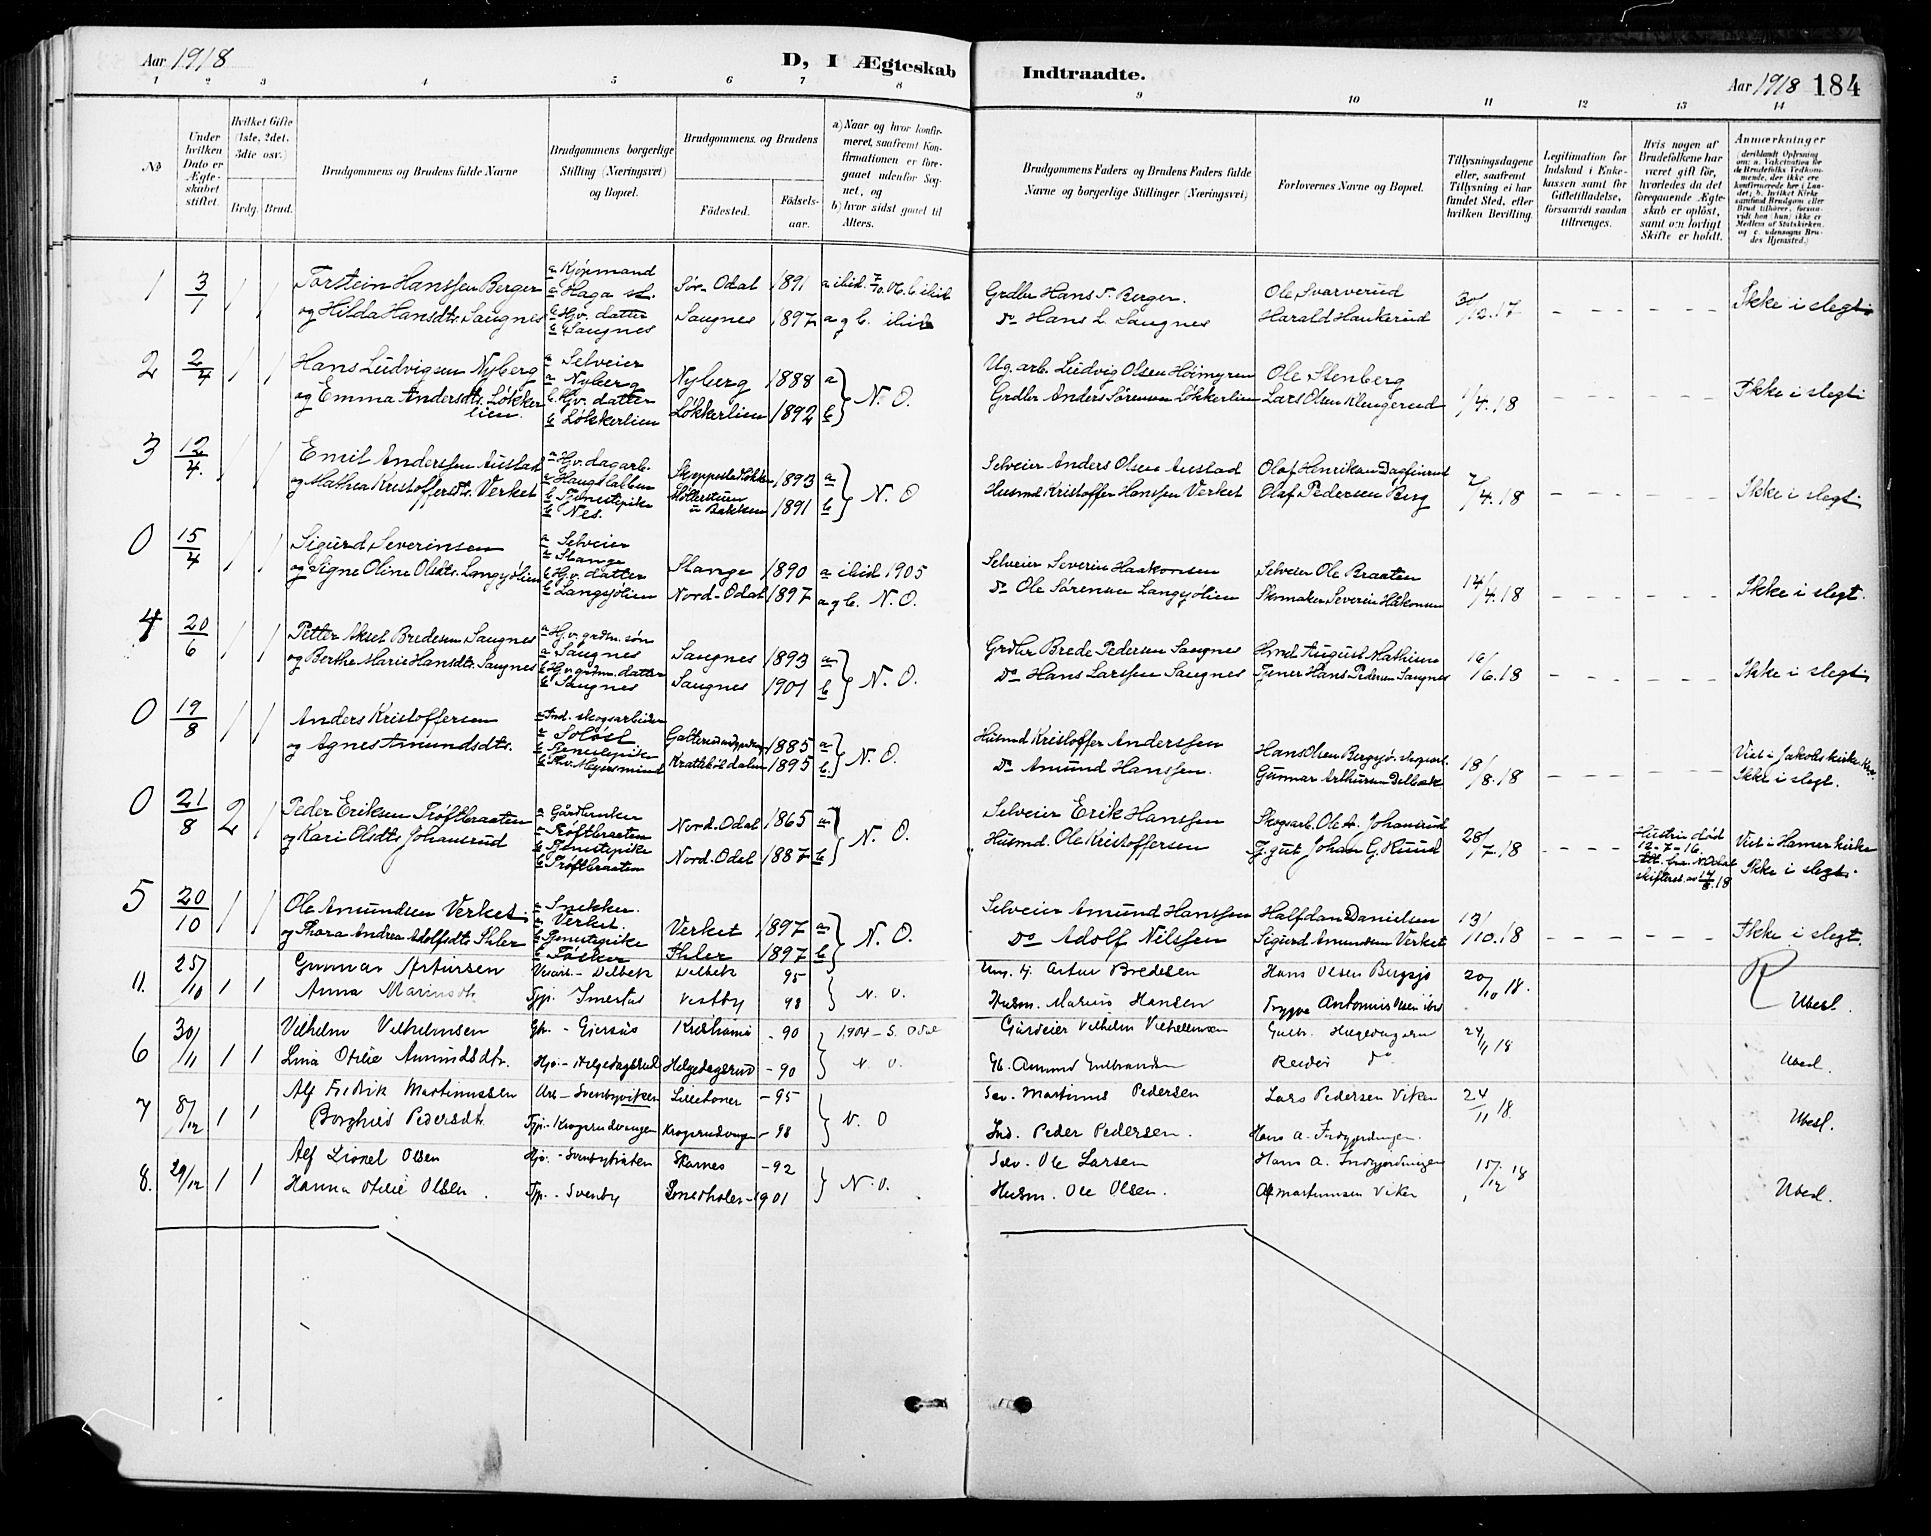 Aar 1918
D, I Ægteskab
Indtraadte.
Aar 1918 184
1 2 3 4 5 6 7 8 9 10 11 12 13 14
No
Under hvilken Dato er Ægteskabet stiftet.
Hvilket Gifte (1ste, 2det, 3die osv.)
Brdg. Brud.
Brudgommens og Brudens fulde Navne
Brudgommens borgerlige Stilling (Næringsvei) og Bopæl.
Brudgommens og Brudens
Fødested.
Fødsels-aar.
a) Naar og hvor konfirmeret, saafremt Konfirmationen er foregaaet udenfor Sognet, og
b) hvor sidst gaaet til Alters.
Brudgommens Faders og Brudens Faders fulde Navne og borgerlige Stillinger (Næringsvei)
Forlovernes Navne og Bopæl.
Tillysningsdagene eller, saafremt Tillysning ei har fundet Sted, efter hvilken Bevilling.
Legitimation for Indskud i Enkekassen samt for Giftetilladelse, forsaavidt saadan tiltrænges.
Hvis nogen af Brudefolkene har været gift før, hvorledes da det foregaaende Ægteskab er opløst, samt om lovligt Skifte er holdt.
Anmærkninger
1 3/1 1 1 Torstein Hanssen Berger a Kjøpmand a Haga st. Sør-Odal 1891 a ibid. 7/10.06. b ibid Grdbr Hans T. Berger. Ole Svarverud 30/12.17 Ikke i slegt
og Hilda Hansdtr. Saugnes b Hjv. datter b Saugnes Saugnes 1897 a og b. ibid Do Hans L. Saugnes Harald Haukerud
2 2/4 1 1 Hans Ludvigsen Nyberg a Selveier a Nyberg Nyberg 1888 a N. O. Ug. arb. Ludvig Olsen Høimyren Ole Stenberg 1/4.18 Ikke i slegt
og Emma Andersdtr. Løkkerlien. b Hjv. datter b Løkkerlien Løkkerlien 1892 b Grdbr Anders Sørensen Løkkerlien Lars Olsen Klengerud
3 12/4. 1 1 Emil Anderssen Austad a Hjv. dagarb. 1893 a N. O Selveier Anders Olsen Austad Olaf Henriksen Dagfinrud 7/4.18 Ikke i slegt
og Mathea Kristoffersdtr. Verket b Tjenestepike b Nes. 1891 b Husmd Kristoffer Hanssen Verket Olaf Pedersen Berg
0 15/4 1 1 Sigurd Severinsen a Selveier a Stange Stange 1890 a ibid 1905 Selveier Severin Haakonsen Selveier Ole Braaten 14/4.18 Ikke i slegt.
og Signe Oline Olsdtr. Langsjølien b Hjv. datter b Langsjølien Nord-Odal 1897 a og b. N. O. Do Ole Sørensen Langsjølien Skomaker Severin Håkonsen
4 20/6 1 1 Petter Aksel Bredesen Saugnes a Hjv. grdm. søn a Saugnes Saugnes 1893 a N. O. Grdbr Brede Pedersen Saugnes Hmd August Mathisen 16/6.18 Ikke i slegt
og Berthe Marie Hansdtr. Saugnes b Hjv. grdm. datter b Saugnes Saugnes 1901 b Do Hans Larssen Saugnes Tjener Hans Pedersen Saugnes
0 19/8 1 1 Anders Kristoffersen a Ind. skogsarbeider 1885 a N. O. Husmd Kristoffer Anderssen Hans Olsen Bergsjø 18/8.18 Viet i Jakobs kirke Kra.
og Agnes Amundsdtr. b Tjenestepike 1895 b. Do Amund Hanssen. Gunnar Arthursen Delbæk Ikke i slegt.
0 21/8 2 1 Peder Eriksen Trøftbraaten a Gårdbruker a Trøftbraaten Nord-Odal 1865 a N. O. Selveier Erik Hanssen Skogsarb. Ole A. Johansrud 28/7.18 Hustru død 12-7-16. Viet i Hamar kirke
og Kari Olsdtr. Johansrud b Tjenestepike b Trøftbraaten Nord-Odal 1887 b Husmd. Ole Kristoffersen Tj.gut Johan G. Ruud Att. fra N.Odal skifteret av 14/8.18 Ikke i slegt.
5 20/10 1 1 Ole Amundsen Verket a Snekker. a Verket. Verket 1897 a N. O. Selveier Amund Hanssen Halfdan Danielsen 13/10.18 Ikke i slegt
og Thora Andrea Adolfsdtr. Ihler b Tjenestepike b Fosker Ihler 1897 b Do Adolf Nilssen Sigurd Amundsen Verket
0. 25/10 1 1 Gunnar Artursen Delbek Delbek 95 N. O. Ung. tj. Artur Bredesen Hans Olsen Bergsjø 20/10 18. R
Anna Marinsdtr. Tjp. Smestad Vestby 98 Husm. Marius Hansen Trygve Antonius Olsen ibid Ubesl.
6 30/11 1 1 Vilhelm Vilhelmsen Gb. - Gjersøe Kristiania -90 1904 - S. Odal Gårdeier Vilhelm Vilhelmsen Gulbr. Helgedagsrud 24/11 18 Ubesl.
Lina Otelie Amundsdtr. Hjv. - Helgedagsrud Helgedagsrud -90 N. O. Gb. Amund Gulbrandsen Reidar do
7 8/12 1 1 Alf Fredrik Martinussen Arb - Svenbyviken Lilletoner -95 N. O Sev. Martinus Pedersen Lars Pedersen Viken 24/11 18 Ubesl.
Borghild Pedersdtr. Tjp. - Krogsrudvangen Krogsrudvangen - 98 Ind. Peder Pedersen. Hans A. Indgjerdingen.
8. 29/12 1 1 Alf Lionel Olsen Hjv. - Svenbybraten Skarnes -92 N. O. Sev. Ole Larsen Hans A. Indgjerdingen 15/12 18 Ubesl.
Hanna Otelie Olsen. Tjp. - Svenby Smedholen -1901 Husm. Ole Olsen. Alf Martinussen Viken